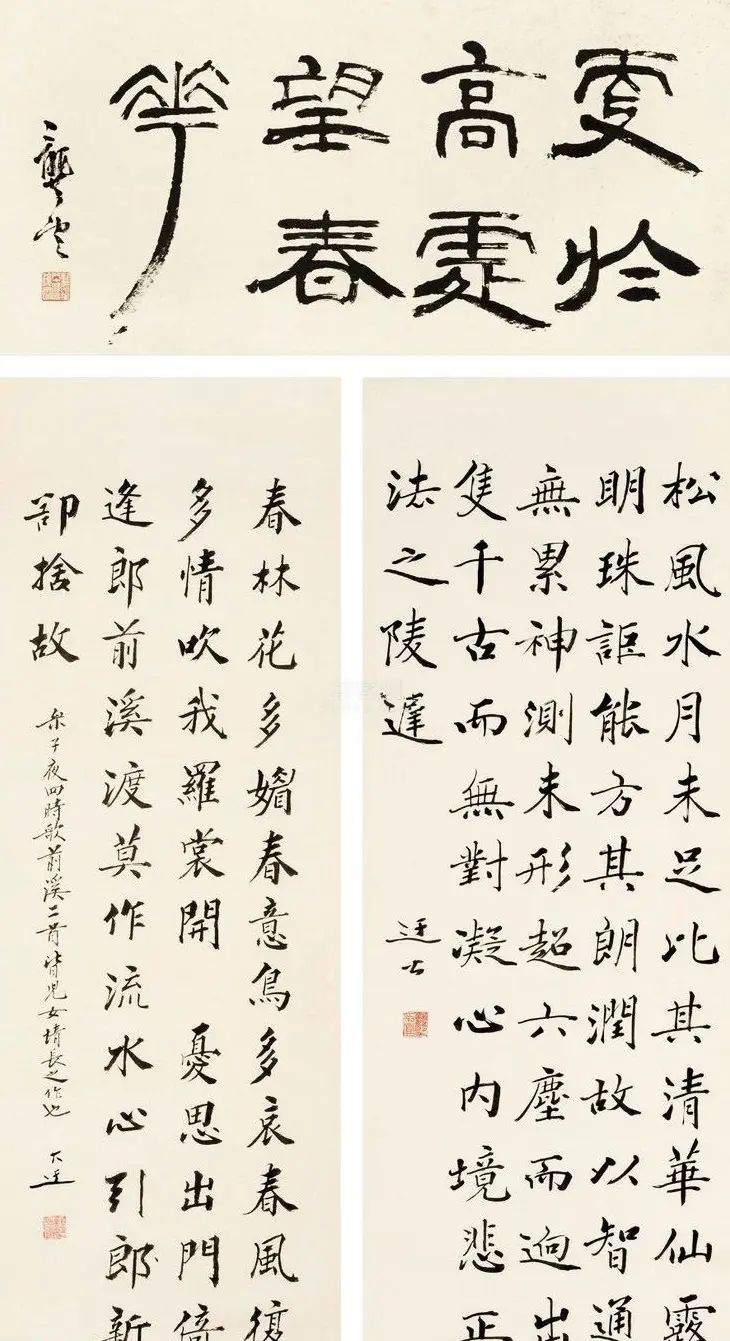 更於
高處
望春
華
龔望
松風水月未足比其清華仙露
明珠詎能方其朗潤故以智通
無累神測未形超六塵而迥出
隻千古而無對凝心內境悲正
法之陵遲
迂士
春林花多媚春意鳥多哀春風復
多情吹我羅裳開 憂思出門倚
逢郎前溪渡莫作流水心引郎新
都捨故
子夜四時歌前溪二首皆兒女情長之作也
大迂